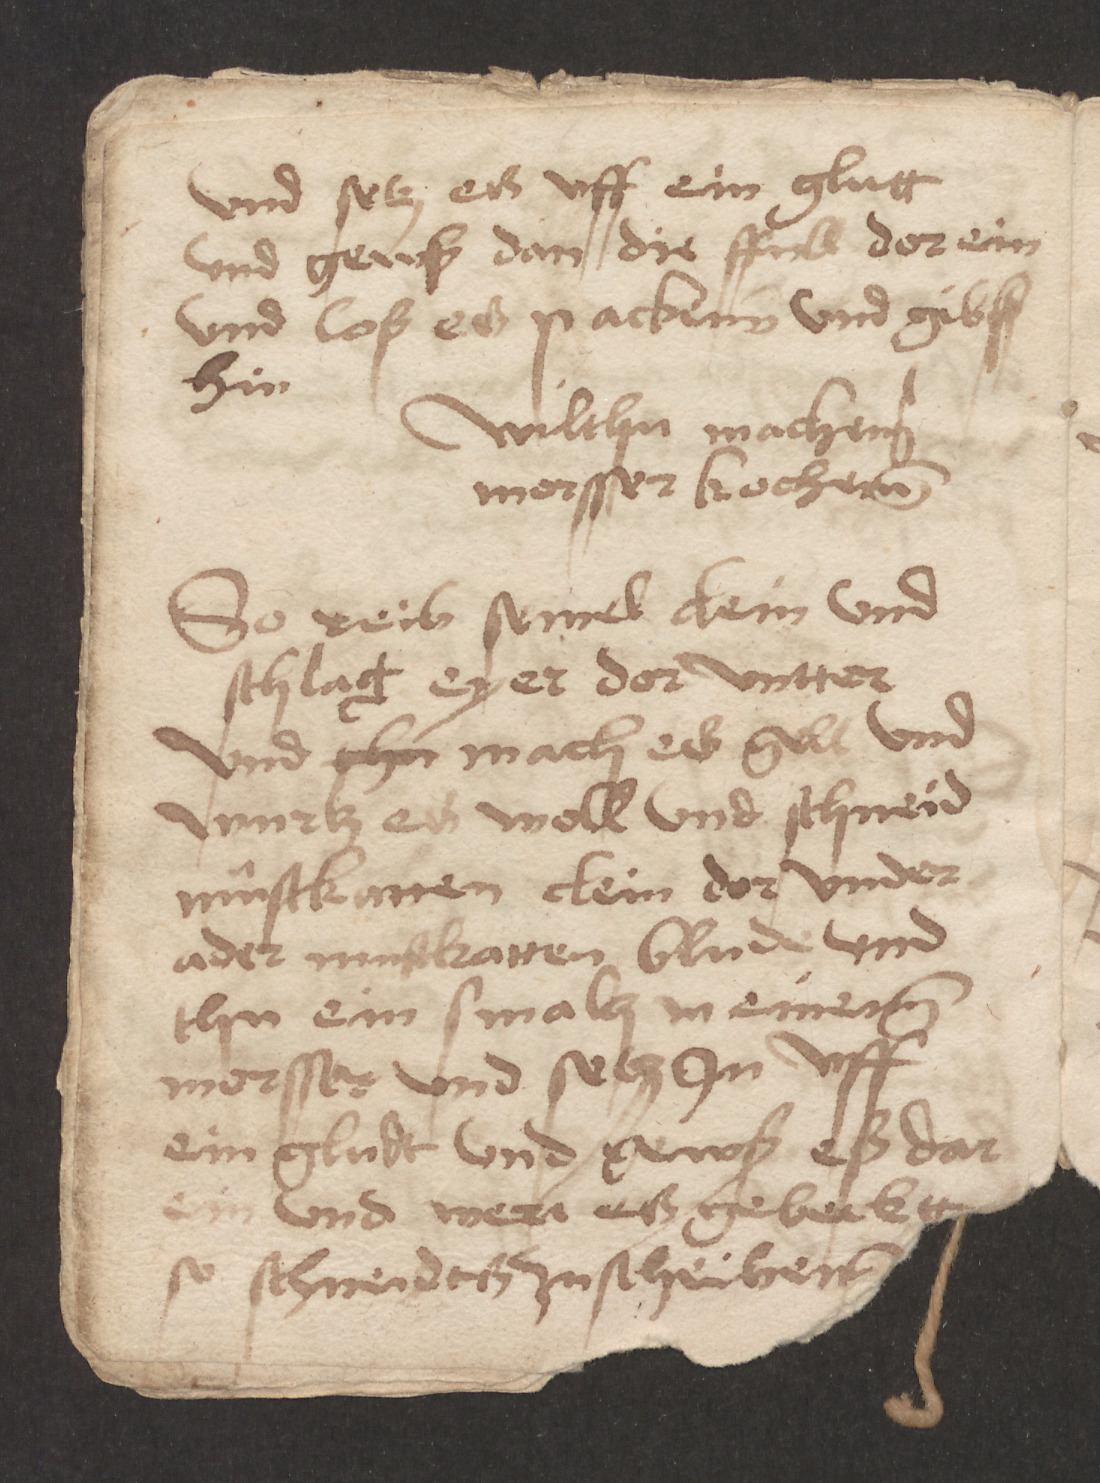 vnd setz es vff ein glutt
vnd geuß dan die ffull dor ein
vnd loß es packenn vnd gibß
hin
wilthu machen
morsser kochenn
So reib semel clein vnd
schlag eyer dor vntter
vnd thu mach es gell vnd
wurtz es woll vnd schneid
muschkatten clein dor vnder
ader muschkatten blude vnd
thu ein smaltz in einenn
morsser vnd setz In vff
ein gludt vnd geuß eß dar
ein vnd wen es gebacktt
so schneidtß zu scheibenn